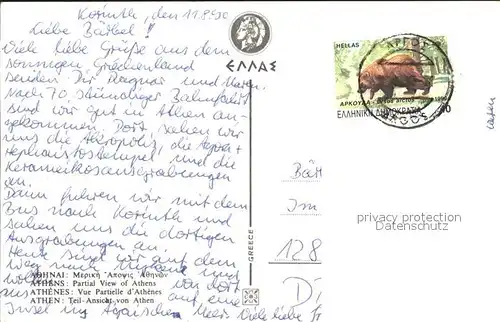 Korinth, den 11.8.90
Liebe Bärbel!
Viele liebe Grüße aus dem
sonnigen Griechenland
senden Dir Dagmar und
Nach 70 stündiger Bahnfahrt
sind wir gut in Athen an-
gekommen. Dort sahen wir
uns die Akropolis, die Agora
Hephaistostempel und die
Kerameikosausgrabungen
an.
Dann fuhren wir mit dem
Bus nach Korinth und
sahen uns die dortigen
Ausgrabungen an.
Heute sind wir auf dem
Weg nach und
von dort
auf eine
Insel im Meer. Viele liebe
ΕΛΛΑΣ
GREECE
ΑΘΗΝΑΙ: Μερική Άποψις Αθηνών
ATHENS: Partial View of Athens
ATHÈNES: Vue Partielle d'Athènes
ATHEN: Teil-Ansicht von Athen
HELLAS
ΑΡΚΟΥΔΑ
ΕΛΛΗΝΙΚΗ ΔΗΜΟΚΡΑΤΙΑ
ARGOS
Bär
Im
128
D
privacy protection
Datenschutz